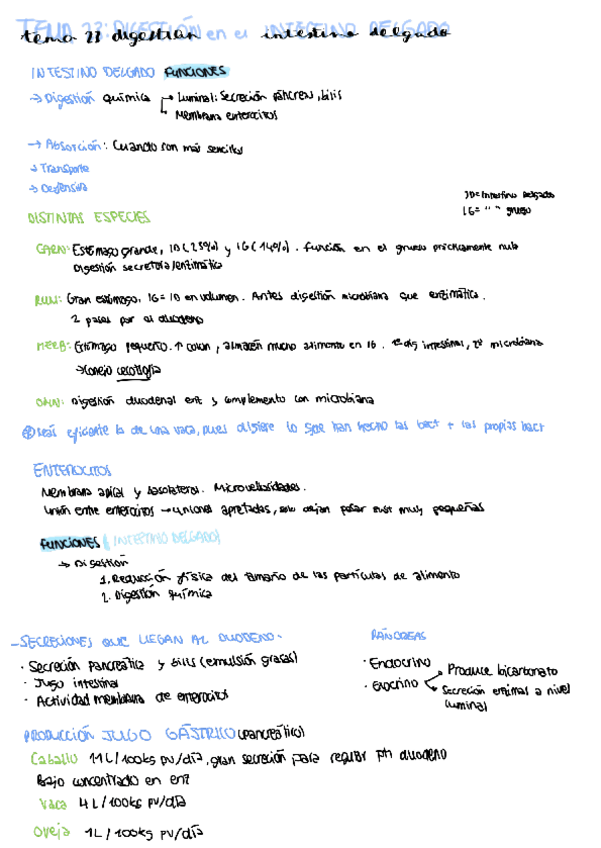 TEMA 23: DIGESTIÓN en el INTESTINO DELGADO
tema 23 digestion en el intestino delgado
INTESTINO DELGADO FUNCIONES
→ Digestión química → Luminal: Secreción páncreas, bilis
→ Membrana enterocitos
→ Absorción: Cuando son más sencillos
→ Transporte
→ Defensiva
ID = Intestino Delgado
IG = " " grueso
DISTINTAS ESPECIES
CARN: Estómago grande, ID (25%) y IG (14%). Función en el grueso prácticamente nula
Digestión secretora/enzimática
RUM: Gran estómago, IG = ID en volumen. Antes digestión microbiana que enzimática.
2 pasos por el duodeno
HERB: Estómago pequeño. ↑ colon, almacén mucho alimento en IG. 1º dig intestinal, 2º microbiana
→ Conejo cecotrofia
OMN: Digestión duodenal enz y complemento con microbiana
más eficiente la de una vaca, pues digiere lo que han hecho las bact + las propias bact
ENTEROCITOS
Membrana apical y basolateral. Microvellosidades.
Unión entre enterocitos → uniones apretadas, solo dejan pasar sust muy pequeñas
FUNCIONES (INTESTINO DELGADO)
→ Digestión
1. Reducción física del tamaño de las partículas de alimento
2. Digestión química
- SECRECIONES QUE LLEGAN AL DUODENO.
· Secreción pancreática y bilis (emulsión grasas)
· Jugo intestinal
· Actividad membrana de enterocitos
PÁNCREAS
· Endocrino
· Exocrino → Produce bicarbonato
→ Secreción enzimas a nivel luminal
PRODUCCIÓN JUGO GÁSTRICO (pancreático)
Caballo 11L/100kg PV/día, gran secreción para regular pH duodeno
Bajo concentrado en enz
Vaca 4L/100kg PV/día
Oveja 1L/100kg PV/día